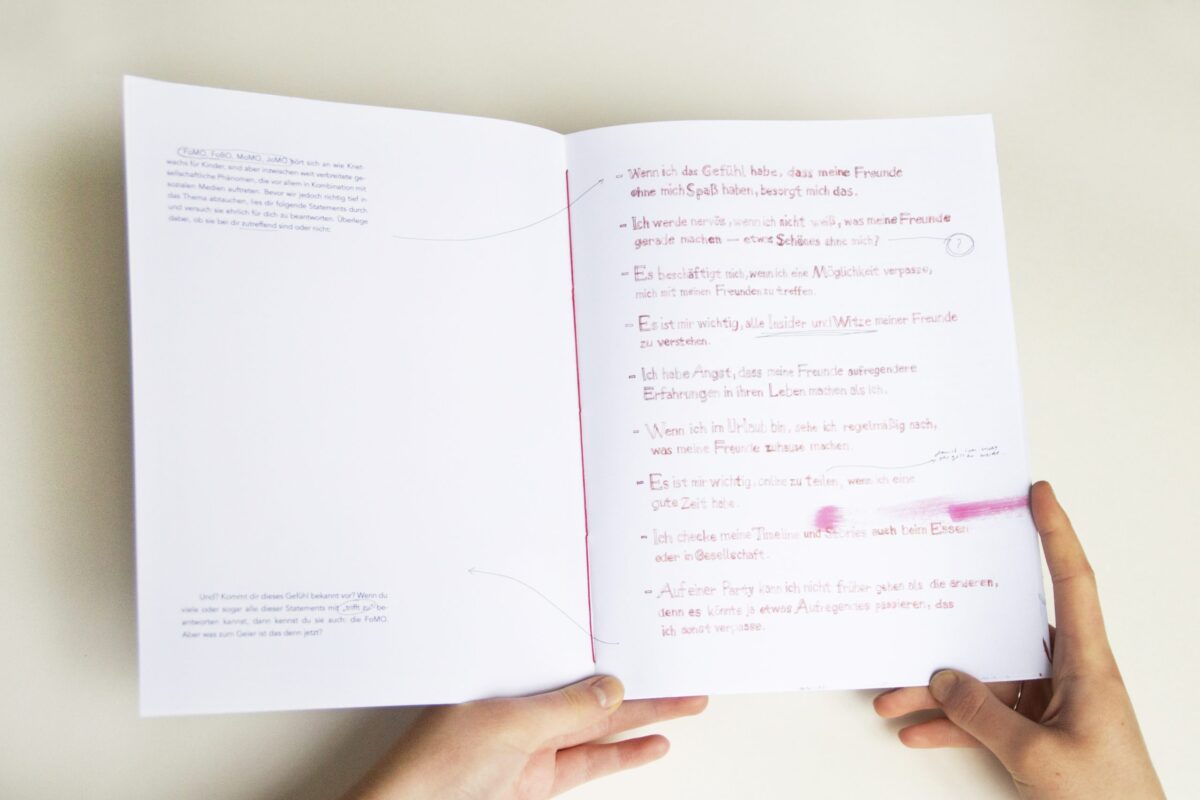 FoMO, FoBO, MoMO, JoMO hört sich an wie Knet-
wachs für Kinder, sind aber inzwischen weit verbreitete ge-
sellschaftliche Phänomen, die vor allem in Kombination mit
sozialen Medien auftreten. Bevor wir jedoch richtig tief in
das Thema abtauchen, lies dir folgende Statements durch
und versuch sie ehrlich für dich zu beantworten. Überlege
dabei, ob sie bei dir zutreffend sind oder nicht.
Und? Kommt dir dieses Gefühl bekannt vor? Wenn du
viele oder sogar alle dieser Statements mit „trifft zu" be-
antworten kannst, dann kennst du sie auch: die FoMO.
Aber was zum Geier ist das denn jetzt?
- Wenn ich das Gefühl habe, dass meine Freunde
ohne mich Spaß haben, besorgt mich das.
- Ich werde nervös, wenn ich nicht weiß, was meine Freunde
gerade machen — etwas Schönes ohne mich? ?
- Es beschäftigt mich, wenn ich eine Möglichkeit verpasse,
mich mit meinen Freunden zu treffen.
- Es ist mir wichtig, alle Insider und Witze meiner Freunde
zu verstehen.
- Ich habe Angst, dass meine Freunde aufregendere
Erfahrungen in ihren Leben machen als ich.
- Wenn ich im Urlaub bin, sehe ich regelmäßig nach,
was meine Freunde zuhause machen.
- Es ist mir wichtig, online zu teilen, wenn ich eine
gute Zeit habe.
- Ich checke meine Timeline und Stories auch beim Essen
oder in Gesellschaft.
- Auf einer Party kann ich nicht früher gehen als die anderen,
denn es könnte ja etwas Aufregendes passieren, das
ich sonst verpasse.